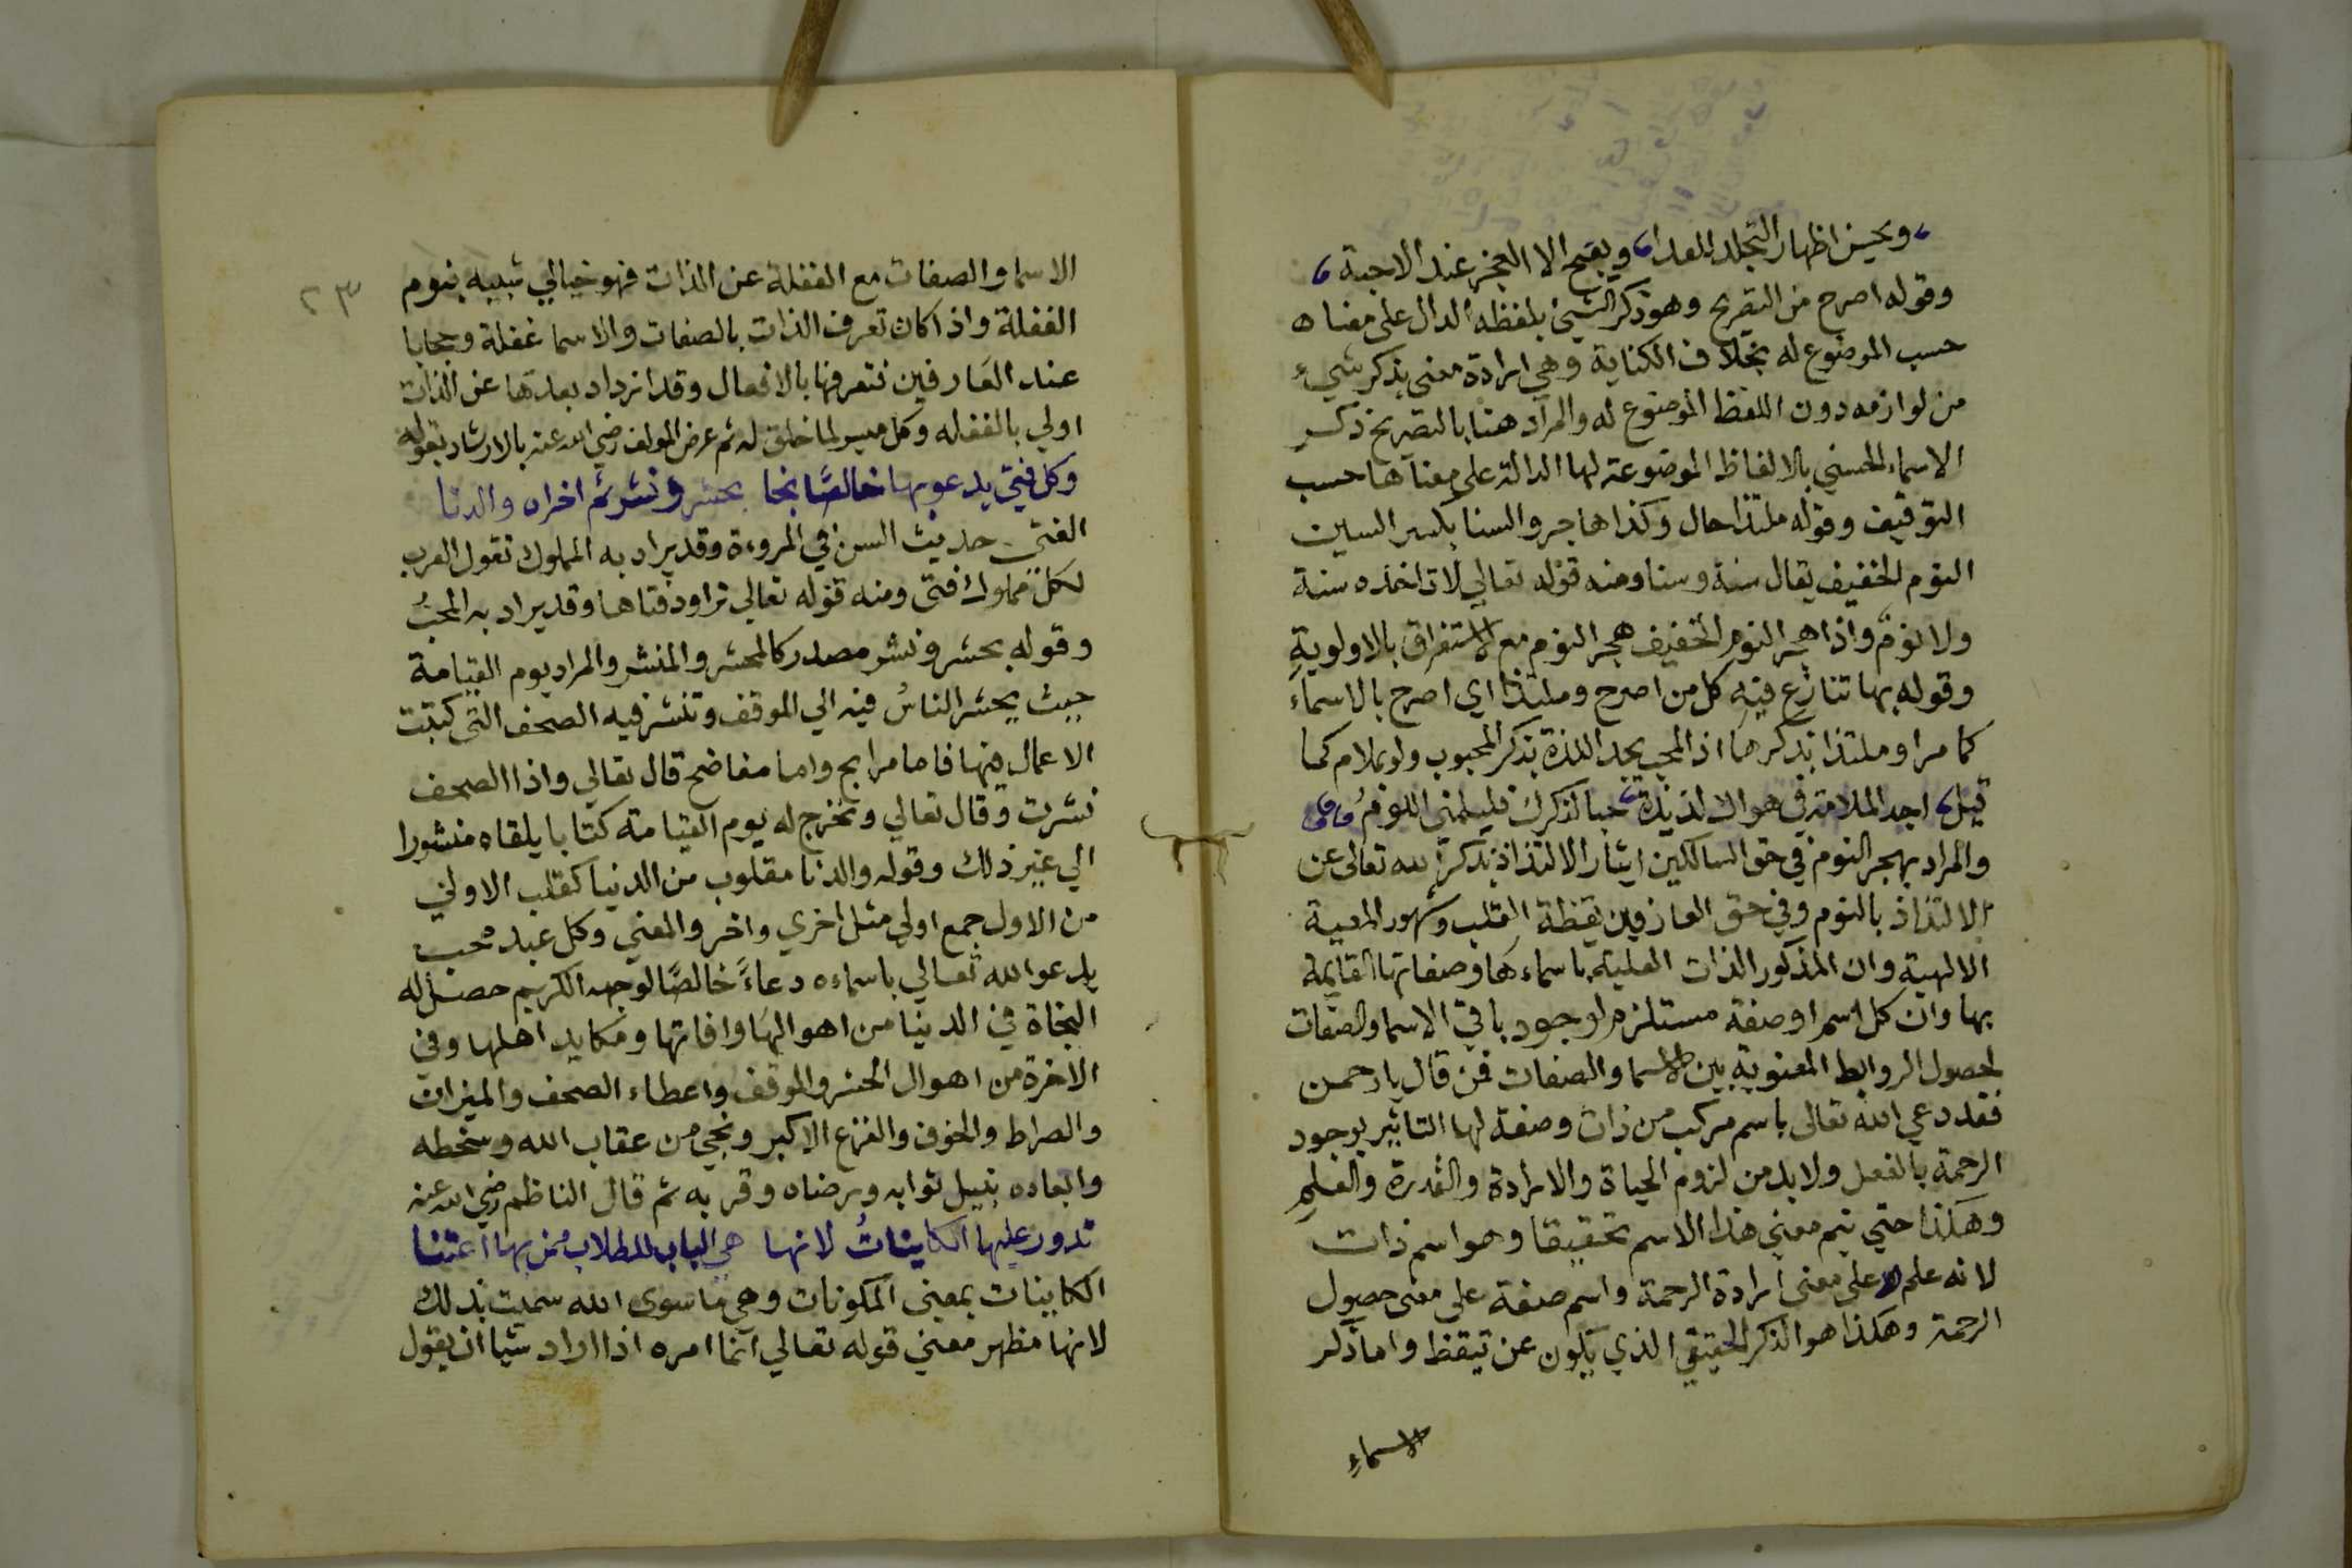 ويحسن اظهار التجلد للعدا ويقبح الا العجز عند الاحبة
وقوله اصرح من التصريح وهو ذكر الشيئ بلفظه الدال على معناه
حسب الموضوع له بخلاف الكناية وهي ارادة معنى بذكر شيء
من لوازمه دون اللفظ الموضوع له والمراد هنا بالتصريح ذكر
الاسماء الحسني بالالفاظ الموضوعة لها الدالة على معناها حسب
التوقيف وقوله ملتذا حال وكذا هاجر والسنا بكسر السين
النوم الخفيف يقال سنة وسنا ومنه قوله تعالي لا تاخذه سنة
ولا نوم واذا هجر النوم الخفيف هجر النوم مع الاستغراق بالاولوية
وقوله بها تنازع فيه كل من اصرح وملتذا اي اصرح بالاسماء
كما مر او ملتذا بذكرها اذ المحب يجد اللذة بذكر المحبوب ولو بملام كما
قيل اجد الملامة في هواك لذيذة حبا لذكرك فليلمني اللوم
والمراد بهجر النوم في حق السالكين ايثار الالتذاذ بذكر الله تعالى عن
الالتذاذ بالنوم وفي حق العارفين يقظة القلب وشهود المعية
الالهية وان المذكور الذات العلية باسماءها وصفاتها القايمة
بها وان كل اسم او صفة مستلزم لوجود باقي الاسما والصفات
لحصول الروابط المعنوية بين الاسما والصفات فمن قال يا رحمن
فقد دعي الله تعالى باسم مركب من ذات وصفة لها التاثير بوجود
الرحمة بالفعل ولا بد من لزوم الحياة والارادة والقدرة والعلم
وهكذا حتي يتم معني هذا الاسم تحقيقا وهو اسم ذات
لانه علم على معني ارادة الرحمة واسم صفة على معنى حصول
الرحمة وهكذا هو الذكر الحقيقي الذي يكون عن تيقظ واما ذكر
الاسماء
٢٣
الاسما والصفات مع الغفلة عن الذات فهو خيالي شبيه بنوم
الغفلة واذا كان تعرف الذات بالصفات والاسما غفلة وحجابا
عند العارفين فتعرفها بالافعال وقد ازداد بعدها عن الذات
اولي بالغفله وكل ميسر لما خلق له ثم عرض المولف رضي الله عنه بالارشاد بقوله
وكل فتي يدعو بها خالصًا نجا بحشر ونشر ثم اخراه والدنا
الفتي حديث السن في المروءة وقد يراد به المملوك تقول العرب
لكل مملوك فتى ومنه قوله تعالي تراود فتاها وقد يراد به المحبُ
وقوله بحشر ونشر مصدر كالمحشر والمنشر والمراد يوم القيامة
حيث يحشر الناسُ فيه الي الموقف وتنشر فيه الصحف التى كتبت
الاعمال فيها فاما مرابح واما مفاضح قال تعالي واذا الصحف
نشرت وقال تعالي ونخرج له يوم القيامة كتابا يلقاه منشورا
الي غير ذلك وقوله والدنا مقلوب من الدنيا كقلب الاولي
من الاول جمع اولي مثل اخري واخر والمعني وكل عبد محب
يدعو الله تعالي باسماءه دعاءً خالصًا لوجهه الكريم حصل له
النجاة في الدنيا من اهوالها وافاتها ومكايد اهلها وفي
الاخرة من اهوال الحشر والموقف واعطاء الصحف والميزان
والصراط والخوف والفزع الاكبر ونجي من عقاب الله وسخطه
وابعاده بنيل ثوابه ورضاه وقربه ثم قال الناظم رضي الله عنه
تدور عليها الكاينات لانها هي الباب للطلاب فمن بها اعتنا
الكاينات بمعني المكونات وهي ما سوى الله سميت بذلك
لانها مظهر معني قوله تعالي انما امره اذا اراد شيا ان يقول